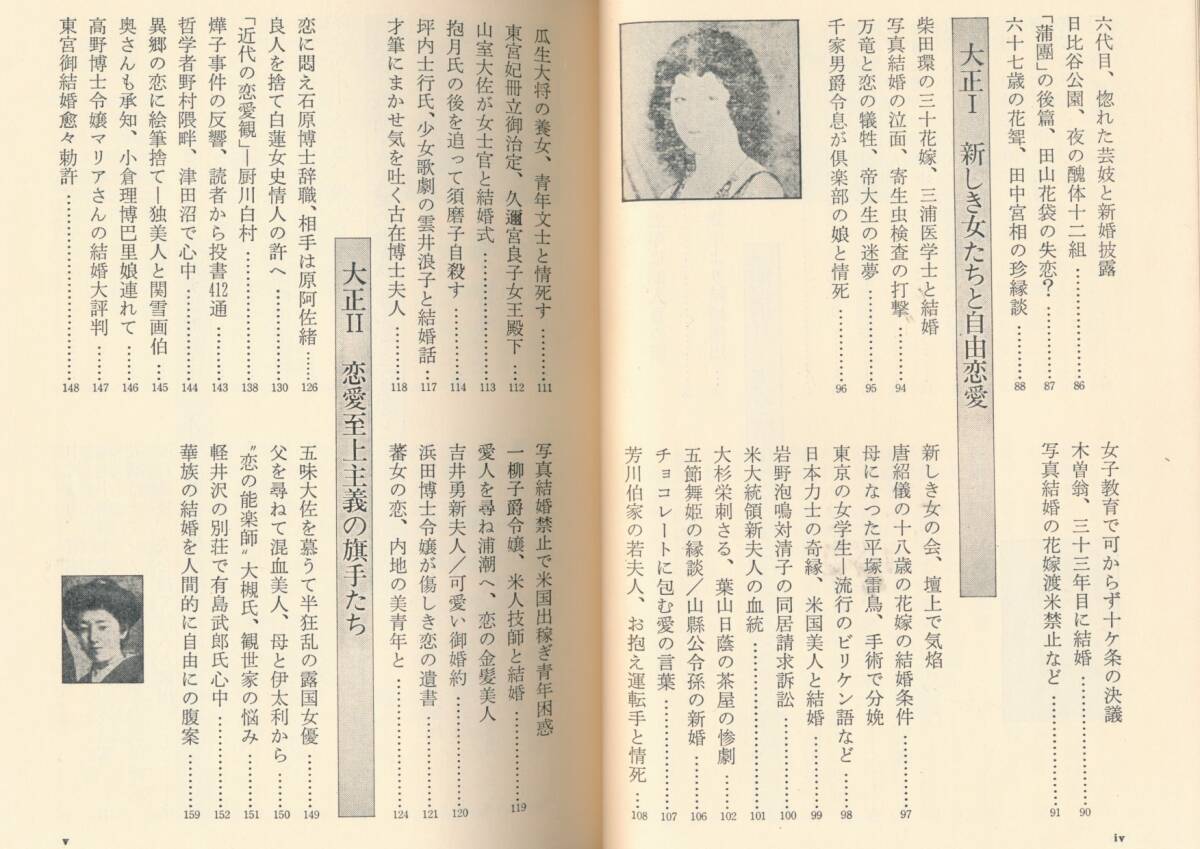 六代目、惚れた芸妓と新婚披露
日比谷公園、夜の醜体十二組…………86
「蒲團」の後篇、田山花袋の失恋?…………87
六十七歳の花聟、田中宮相の珍縁談…………88
女子教育で可からず十ケ条の決議
木曽翁、三十三年目に結婚…………90
写真結婚の花嫁渡米禁止など…………91
大正I 新しき女たちと自由恋愛
柴田環の三十花嫁、三浦医学士と結婚
写真結婚の泣面、寄生虫検査の打撃…………94
万竜と恋の犠牲、帝大生の迷夢…………95
千家男爵令息が倶楽部の娘と情死…………96
新しき女の会、壇上で気焰
唐紹儀の十八歳の花嫁の結婚条件…………97
母になつた平塚雷鳥、手術で分娩
東京の女学生―流行のビリケン語など……98
日本力士の奇縁、米国美人と結婚…………99
岩野泡鳴対清子の同居請求訴訟…………100
米大統領新夫人の血統…………101
大杉栄刺さる、葉山日蔭の茶屋の惨劇……102
五節舞姫の縁談/山縣公令孫の新婚……106
チョコレートに包む愛の言葉…………107
芳川伯家の若夫人、お抱え運転手と情死……108
瓜生大将の養女、青年文士と情死す………111
東宮妃冊立御治定、久邇宮良子女王殿下……112
山室大佐が女士官と結婚式…………113
抱月氏の後を追って須磨子自殺す…………114
坪内士行氏、少女歌劇の雲井浪子と結婚話……117
才筆にまかせ気を吐く古在博士夫人………118
写真結婚禁止で米国出稼ぎ青年困惑
一柳子爵令嬢、米人技師と結婚…………119
愛人を尋ね浦潮へ、恋の金髪美人
吉井勇新夫人/可愛い御婚約…………120
浜田博士令嬢が傷しき恋の遺書…………121
蕃女の恋、内地の美青年と…………124
大正II 恋愛至上主義の旗手たち
恋に悶え石原博士辞職、相手は原阿佐緒……126
良人を捨て白蓮女史情人の許へ…………130
「近代の恋愛観」―厨川白村…………138
燁子事件の反響、読者から投書412通………143
哲学者野村隈畔、津田沼で心中…………144
異郷の恋に絵筆捨て―独美人と関雪画伯……145
奥さんも承知、小倉理博巴里娘連れて……146
高野博士令嬢マリアさんの結婚大評判……147
東宮御結婚愈々勅許…………148
五味大佐を慕うて半狂乱の露国女優……149
父を尋ねて混血美人、母と伊太利から……150
"恋の能楽師"大槻氏、観世家の悩み……151
軽井沢の別荘で有島武郎氏心中…………152
華族の結婚を人間的に自由にの腹案……159
iv
v